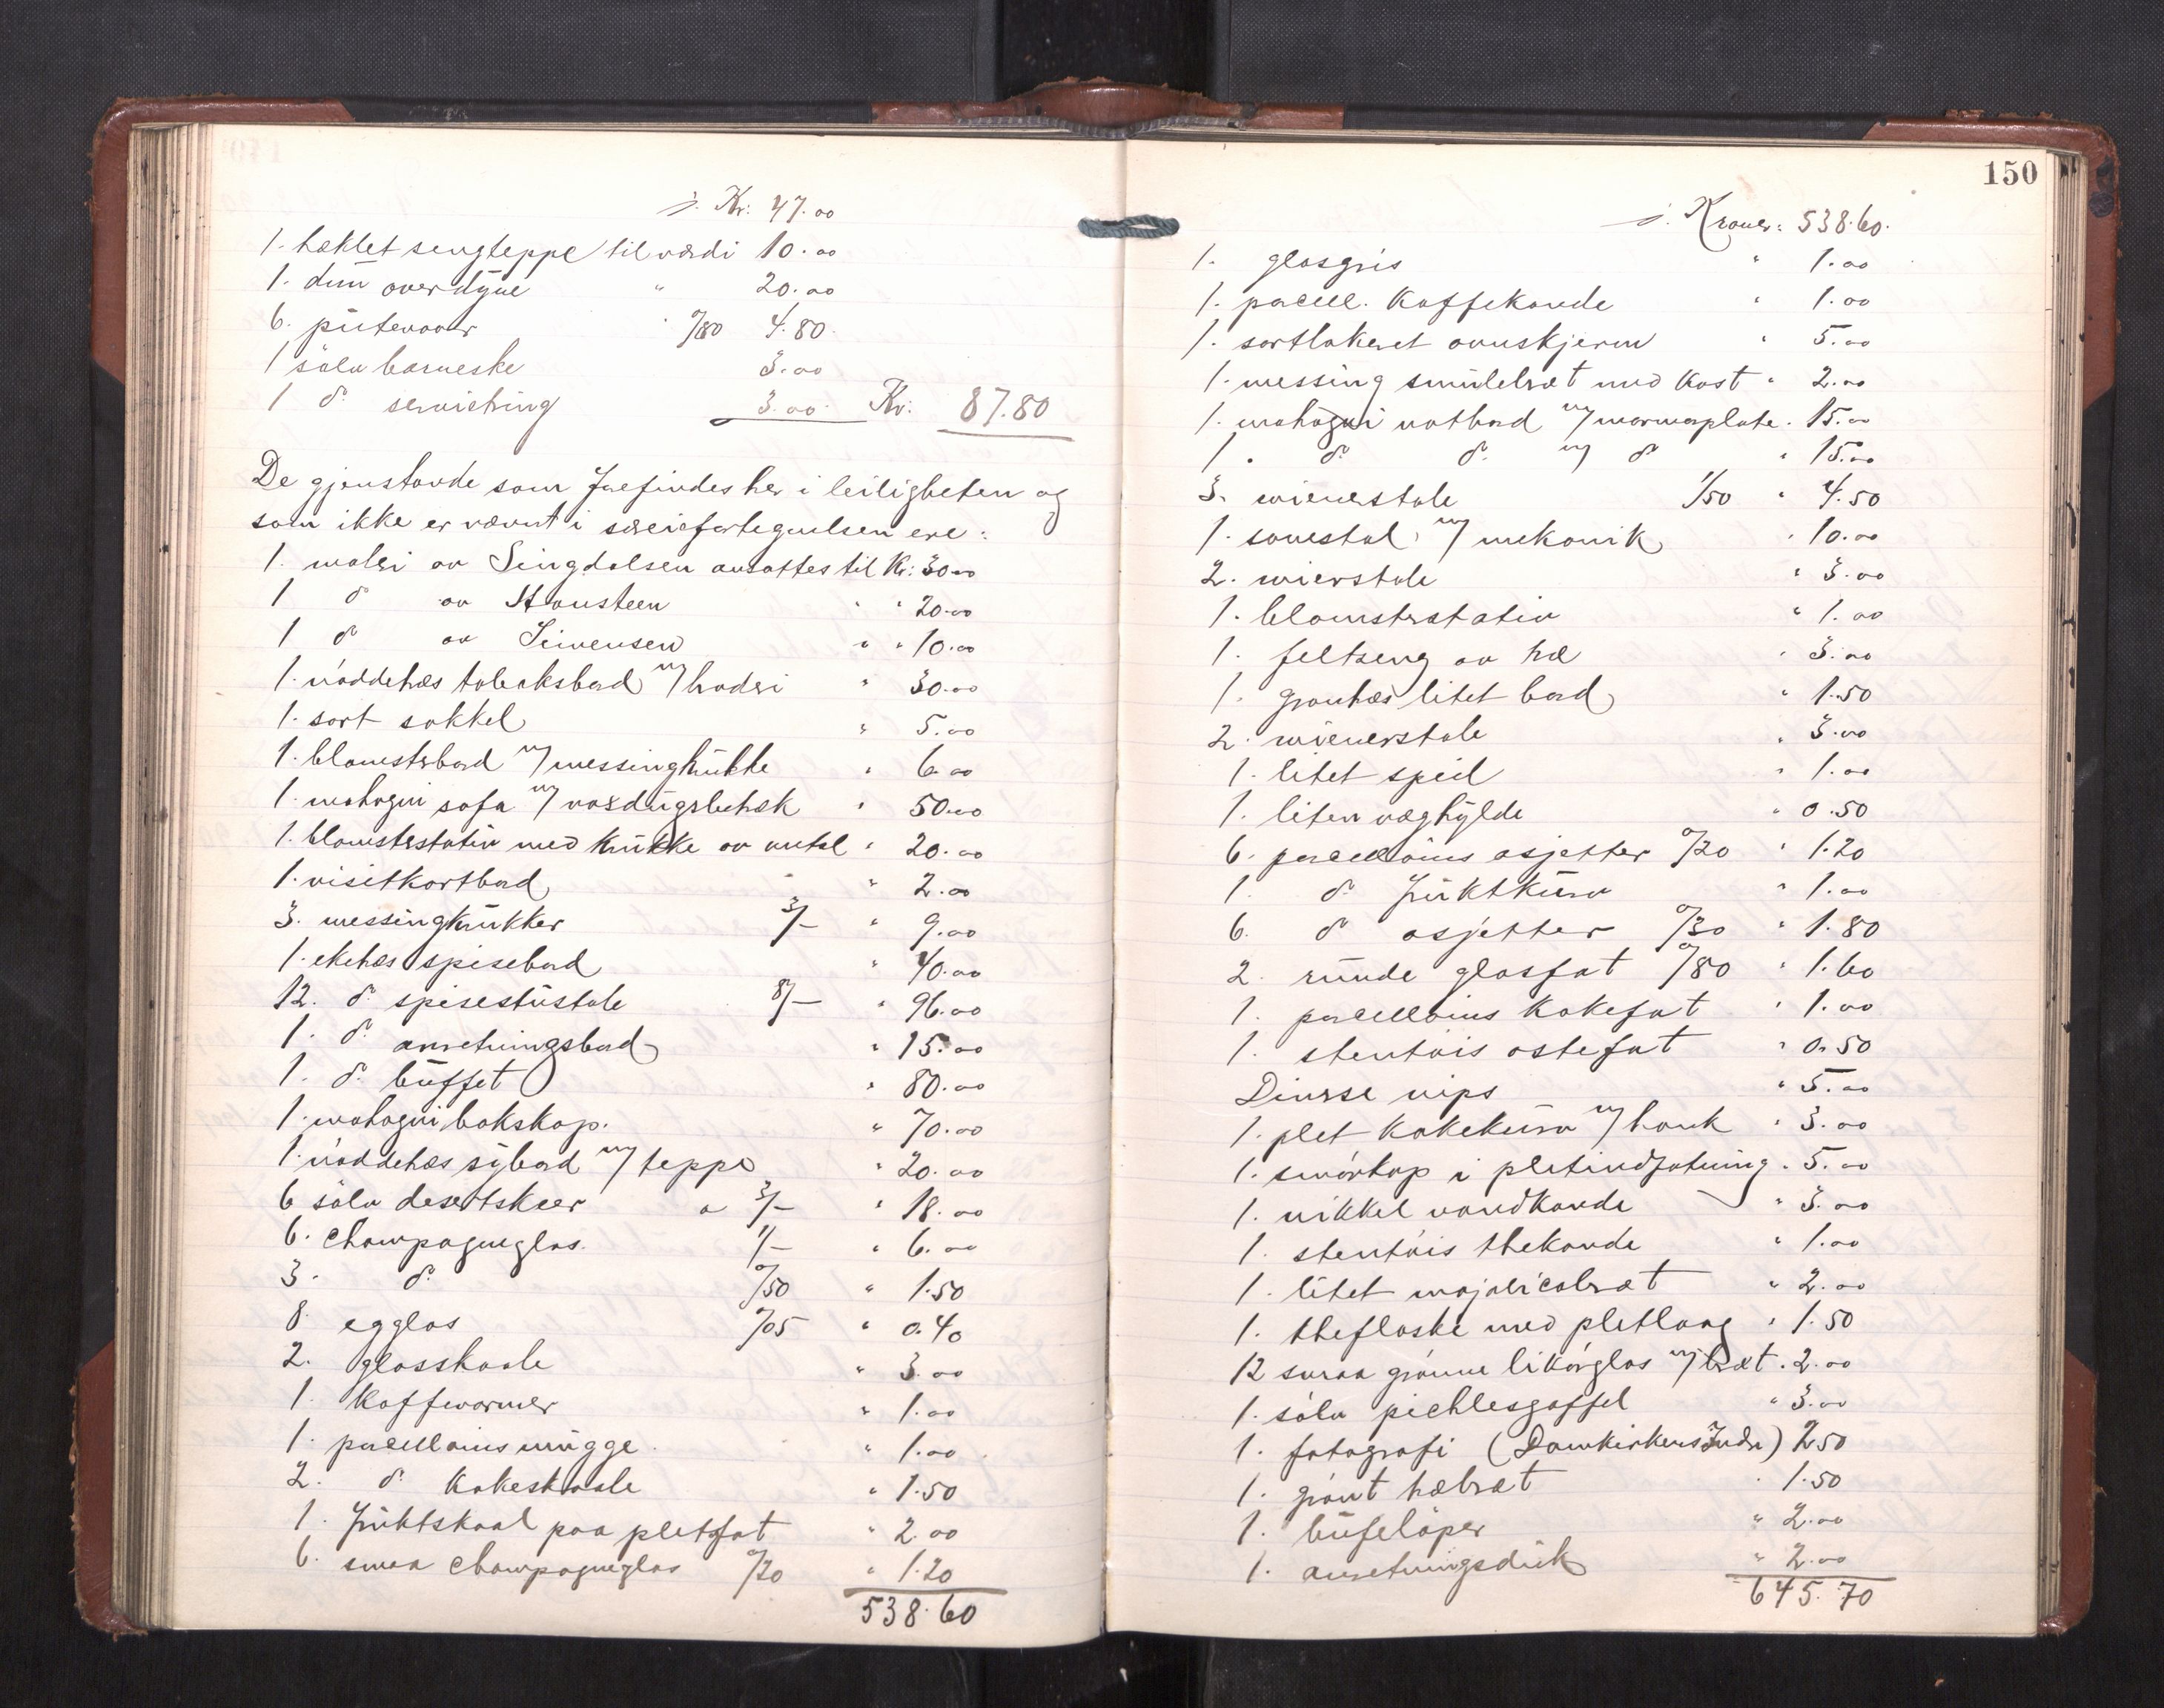 j. Kr: 47.00
1. heklet sengteppe til værdi 10.00
1. dun overdyne " 20.00
6. putevaar " 0/80 4.80
1 sølv barneske 3.00
1 do servietring 3.00 Kr: 87.80
De gjenstande som forefindes her i leiligheten og
som ikke er nævnt i særeiefortegnelsen ere:
1. maleri av Singdalsen ansattes til Kr: 30.00
1 do av Hansteen " " 20.00
1 do av Simensen " " 10.00
1. nøddetræs tobaksbord m/ broderi " 30.00
1. sort sokkel " 5.00
1. blomsterbord m/ messingkrukke " 6.00
1. mahogni sofa m/ voksdugsbetræk " 50.00
1. blomsterstativ med krukke av metal " 20.00
1. visitkortbord " 2.00
3. messingkrukker 3/- " 9.00
1. eketræs spisebord " 40.00
12. do spisestustole 8/- " 96.00
1. do anretningsbord " 15.00
1. do buffet " 80.00
1. mahogni bokskap. " 70.00
1. nøddetræs sybord m/ teppe " 20.00
6 sølv desertskeer a 3/- " 18.00
6. Champagneglas. 1/- " 6.00
3. do 0/50 " 1.50
8. egglas 0/05 " 0.40
2. glasskaale " 3.00
1. Kaffevarmer " 1.00
1. porcellains mugge " 1.00
2. do kakeskaale " 1.50
1. fruktskaal paa pletfat " 2.00
6. smaa champagneglas 0/20 " 1.20
538.60
150
j. Kroner: 538.60.
1. glasgris " 1.00
1. porcell. Kaffekande " 1.00
1. sortlakeret ovnsskjerm " 5.00
1. messing smulebræt med kost " 2.00
1. mahogni natbord m/ marmorplate. 15.00
1. do do m/ do " 15.00
3. wienerstole 1/50 " 4.50
1. sovestol m/ mekanik " 10.00
2. wienerstole " 3.00
1. blomsterstativ " 1.00
1. feltseng av træ " 3.00
1. grantræs litet bord " 1.50
2. wienerstole " 3.00
1. litet speil " 1.00
1. liten væghylde " 0.50
6. porcellains asjetter 0/20 " 1.20
1. do fruktkurv " 1.00
6. do asjetter 0/30 " 1.80
2. runde glasfat 0/80 " 1.60
1. porcellains kakefat " 1.00
1. stentøis ostefat " 0.50
Diverse nips " 5.00
1. plet kakekurv m/ hank " 3.00
1. smørkop i pletindfatning " 5.00
1. nikkel vandkande " 3.00
1. stentøis thekande " 1.00
1. litet majolicabræt " 2.00
1. theflaske med pletlaag " 1.50
12 smaa grønne likørglas m/ bræt " 2.00
1. sølv picklesgaffel " 3.00
1. fotografi (Domkirkens Indre) 2.50
1. grønt træbræt " 1.50
1. bufeløper " 2.00
1. anretningsduk " 2.00
645.70